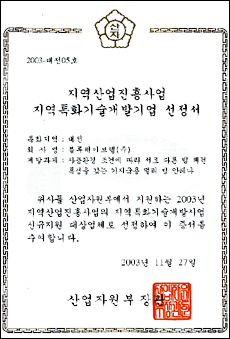 산자
2003-대전05호
지역산업진흥사업
지역특화기술개발기업 선정서
특화지역 : 대전
회 사 명 : 블루웨이브텔(주)
개발과제 : 사용환경 조건에 따라 서로 다른 빔 패턴
특성을 갖는 기지국용 멀티 빔 안테나
위사를 산업자원부에서 지원하는 2003년
지역산업진흥사업의 지역특화기술개발사업
신규지원 대상업체로 선정하여 이 증서를
수여합니다.
2003년 11월 27일
산업자원부장관